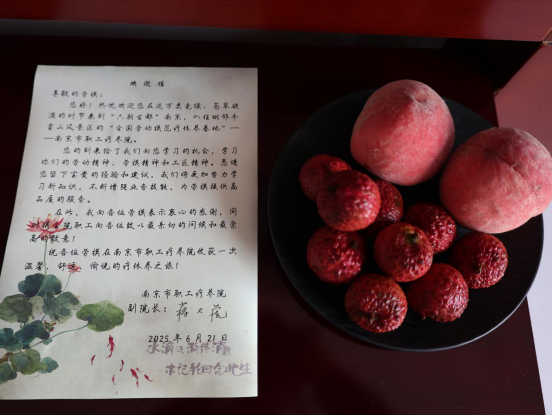 欢迎信
尊敬的劳模：
您好！热忱欢迎您在这万类竞绿、苍翠欲
滴的时节来到“六朝古都”南京，入住毗邻牛
首山风景区的“全国劳动模范疗休养基地”—
—南京市职工疗养院。
您的到来给了我们向您学习的机会，学习
你们的劳动精神、劳模精神和工匠精神。恳请
您留下宝贵的经验和建议，我们将更加努力学
习新知识，不断增强业务技能，为劳模提供高
品质的服务。
在此，我向各位劳模表示衷心的感谢，同
时疗养院职工向各位致以最亲切的问候和最崇
高的敬意！
祝各位劳模在南京市职工疗养院收获一次
温馨、舒适、愉悦的疗休养之旅！
南京市职工疗养院
副院长：
2025年6月21日